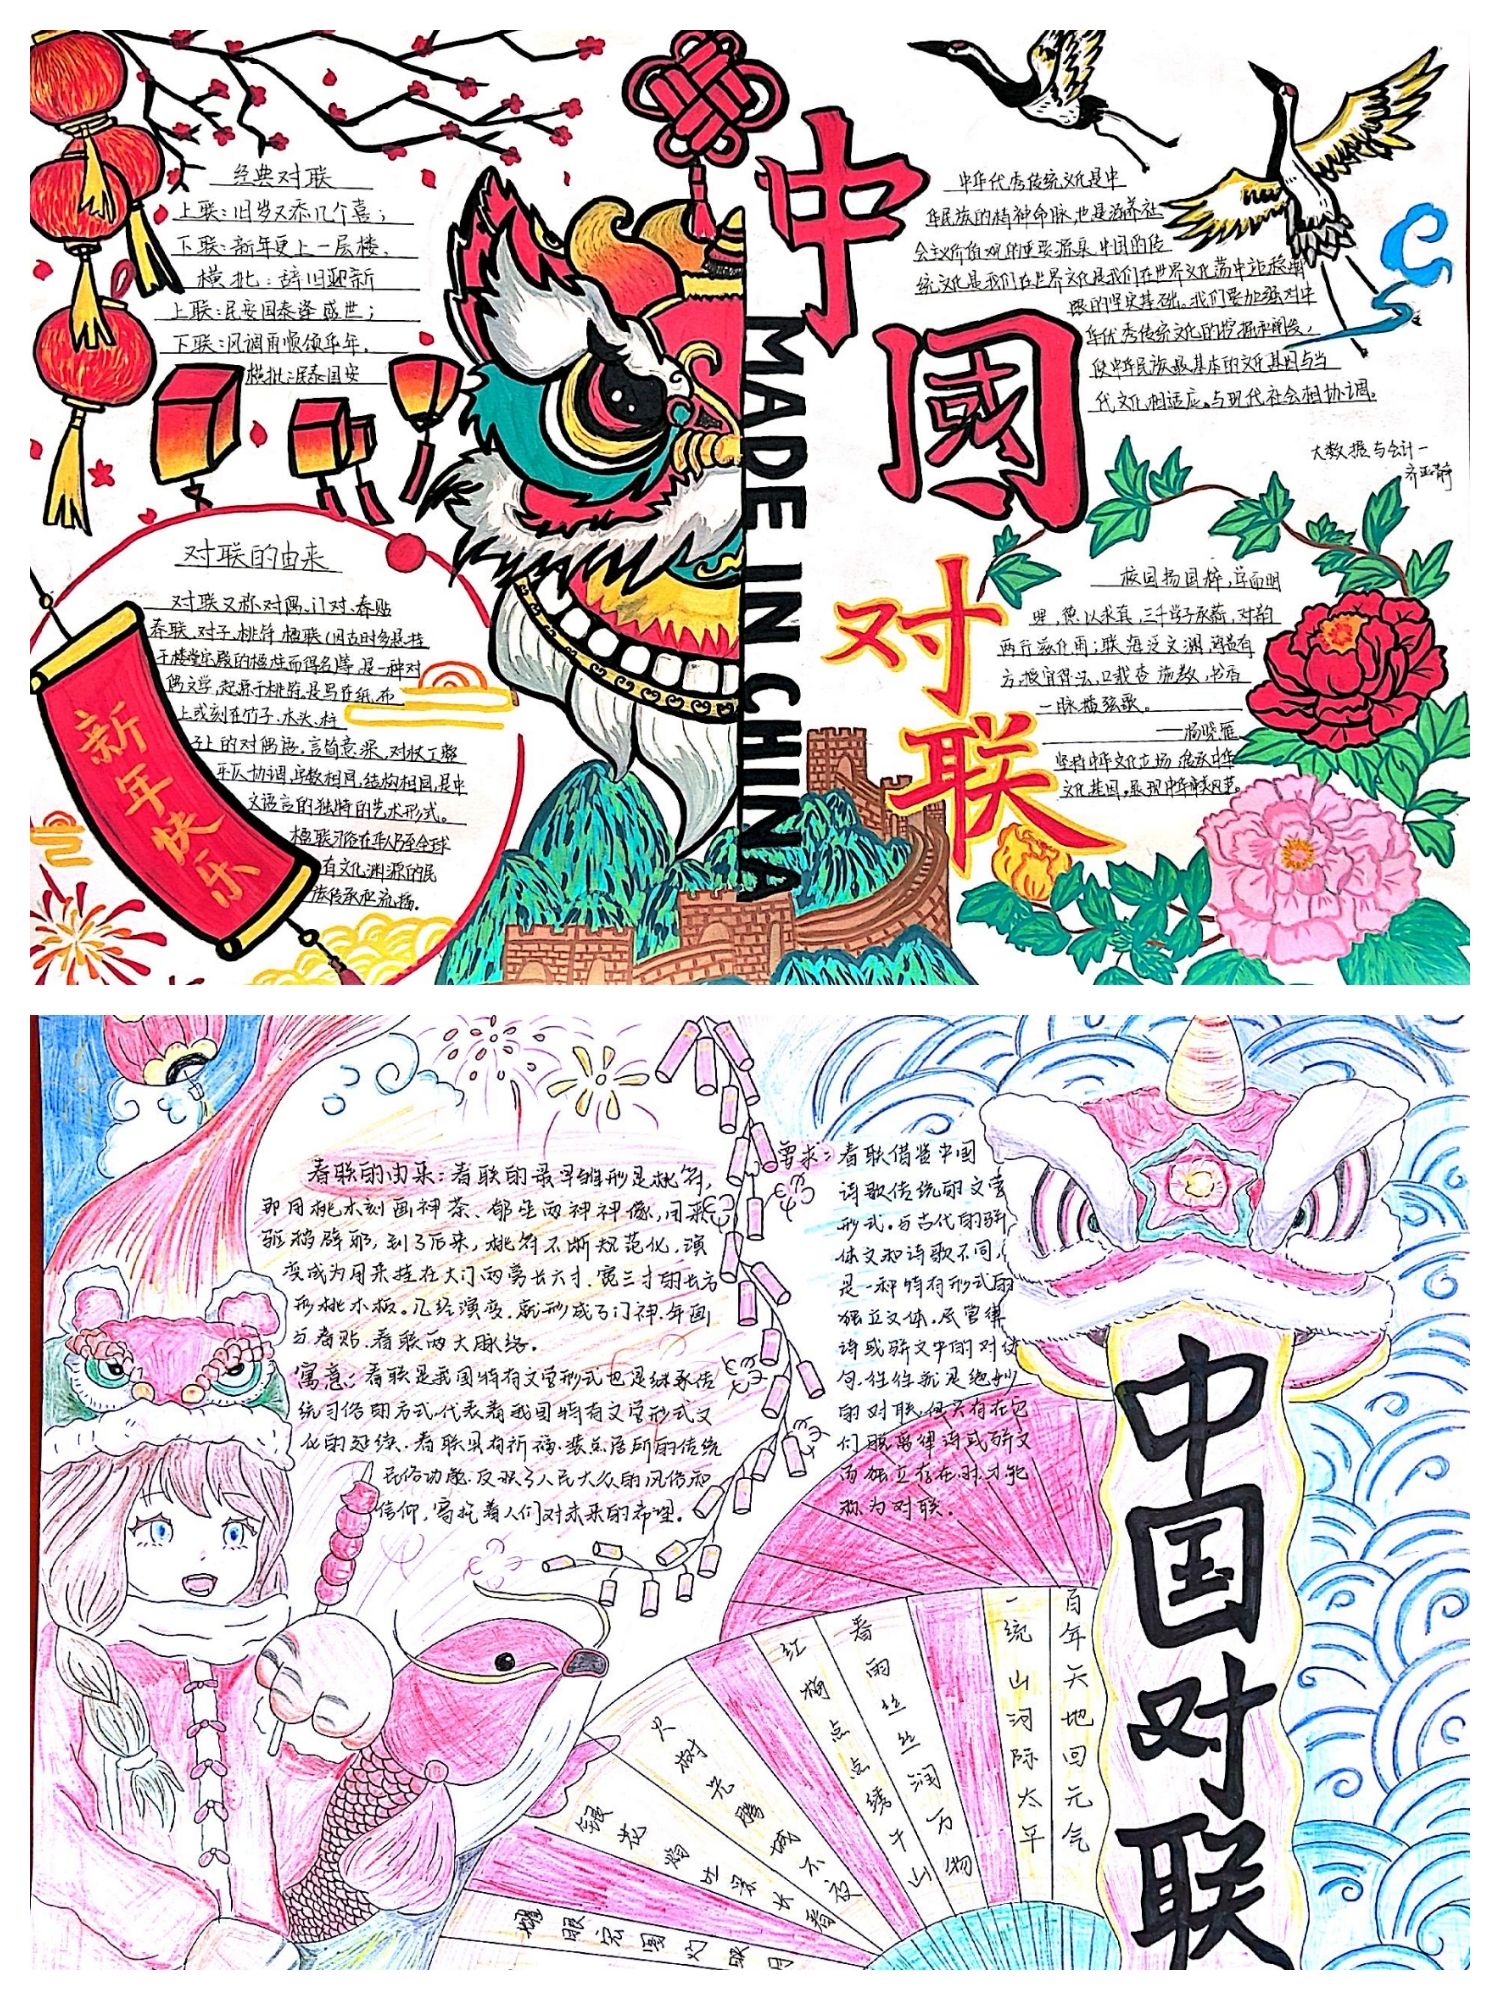 经典对联
上联:旧岁又添几个喜;
下联:新年更上一层楼,
横批:辞旧迎新
上联:民安国泰逢盛世;
下联:风调雨顺颂华年,
横批:民泰国安
对联的由来
对联又称对偶、门对、春贴
春联、对子、桃符、楹联(因古时多悬挂
于楼堂宅殿的楹柱而得名)等,是一种对
偶文学,起源于桃符,是写在纸、布
上或刻在竹子、木头、柱
子上的对偶语,言简意深,对仗工整
平仄协调,字数相同,结构相同,是中
文语言的独特的艺术形式。
楹联习俗在华人乃至全球
有文化渊源的民
族传承和流播。
新年快乐
MADE IN CHINA
中国
对联
中华优秀传统文化是中
华民族的精神命脉,也是涵养社
会主义价值观的重要源泉,中国的传
统文化是我们在世界文化是我们在世界文化荡中站稳脚
跟的坚实基础。我们要加强对中
华优秀传统文化的挖掘和阐发,
使中华民族最基本的文化基因与当
代文化相适应,与现代社会相协调。
大数据与会计一
校园扬国粹,
理,德以求真,三千学子承薪,对韵
两行滋化雨;联海泛文渊,
一脉播弦歌。
坚持中华文化立场,传承中华
文化基因,展现中华审美风范。
春联的由来:春联的最早雏形是桃符,
即用桃木刻画神荼、郁垒两神神像,用来
驱祸辟邪,到了后来,桃符不断规范化,演
变成为用来挂在大门两旁长六寸、宽三寸的长方
形桃木板。几经演变,就形成了门神、年画
与春贴、春联两大脉络。
寓意:春联是我国特有文学形式也是继承传
统习俗的方式,代表着我国特有文学形式文
化的延续,春联具有祈福、装点居所的传统
民俗功能,反映了人民大众的风俗和
信仰,寄托着人们对未来的希望。
要求:春联借鉴中国
诗歌传统的文学
形式。与古代的骈
体文和诗歌不同,
是一种特有形式的
独立文体。尽管律
诗或骈文中的对仗
句,往往就是绝妙
的对联,但只有在它
们脱离律诗或骈文
而独立存在时,才能
称为对联。
百年天地回元气
一统山河际太平
春雨丝丝润万物
红梅点点绣千山
火树光腾城不夜
银花焰吐景长春
中国对联